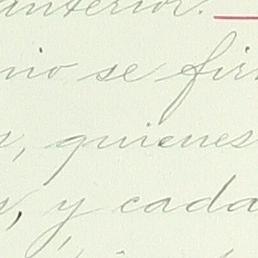 anterior.
nio se fir
s, quienes
s, y cada